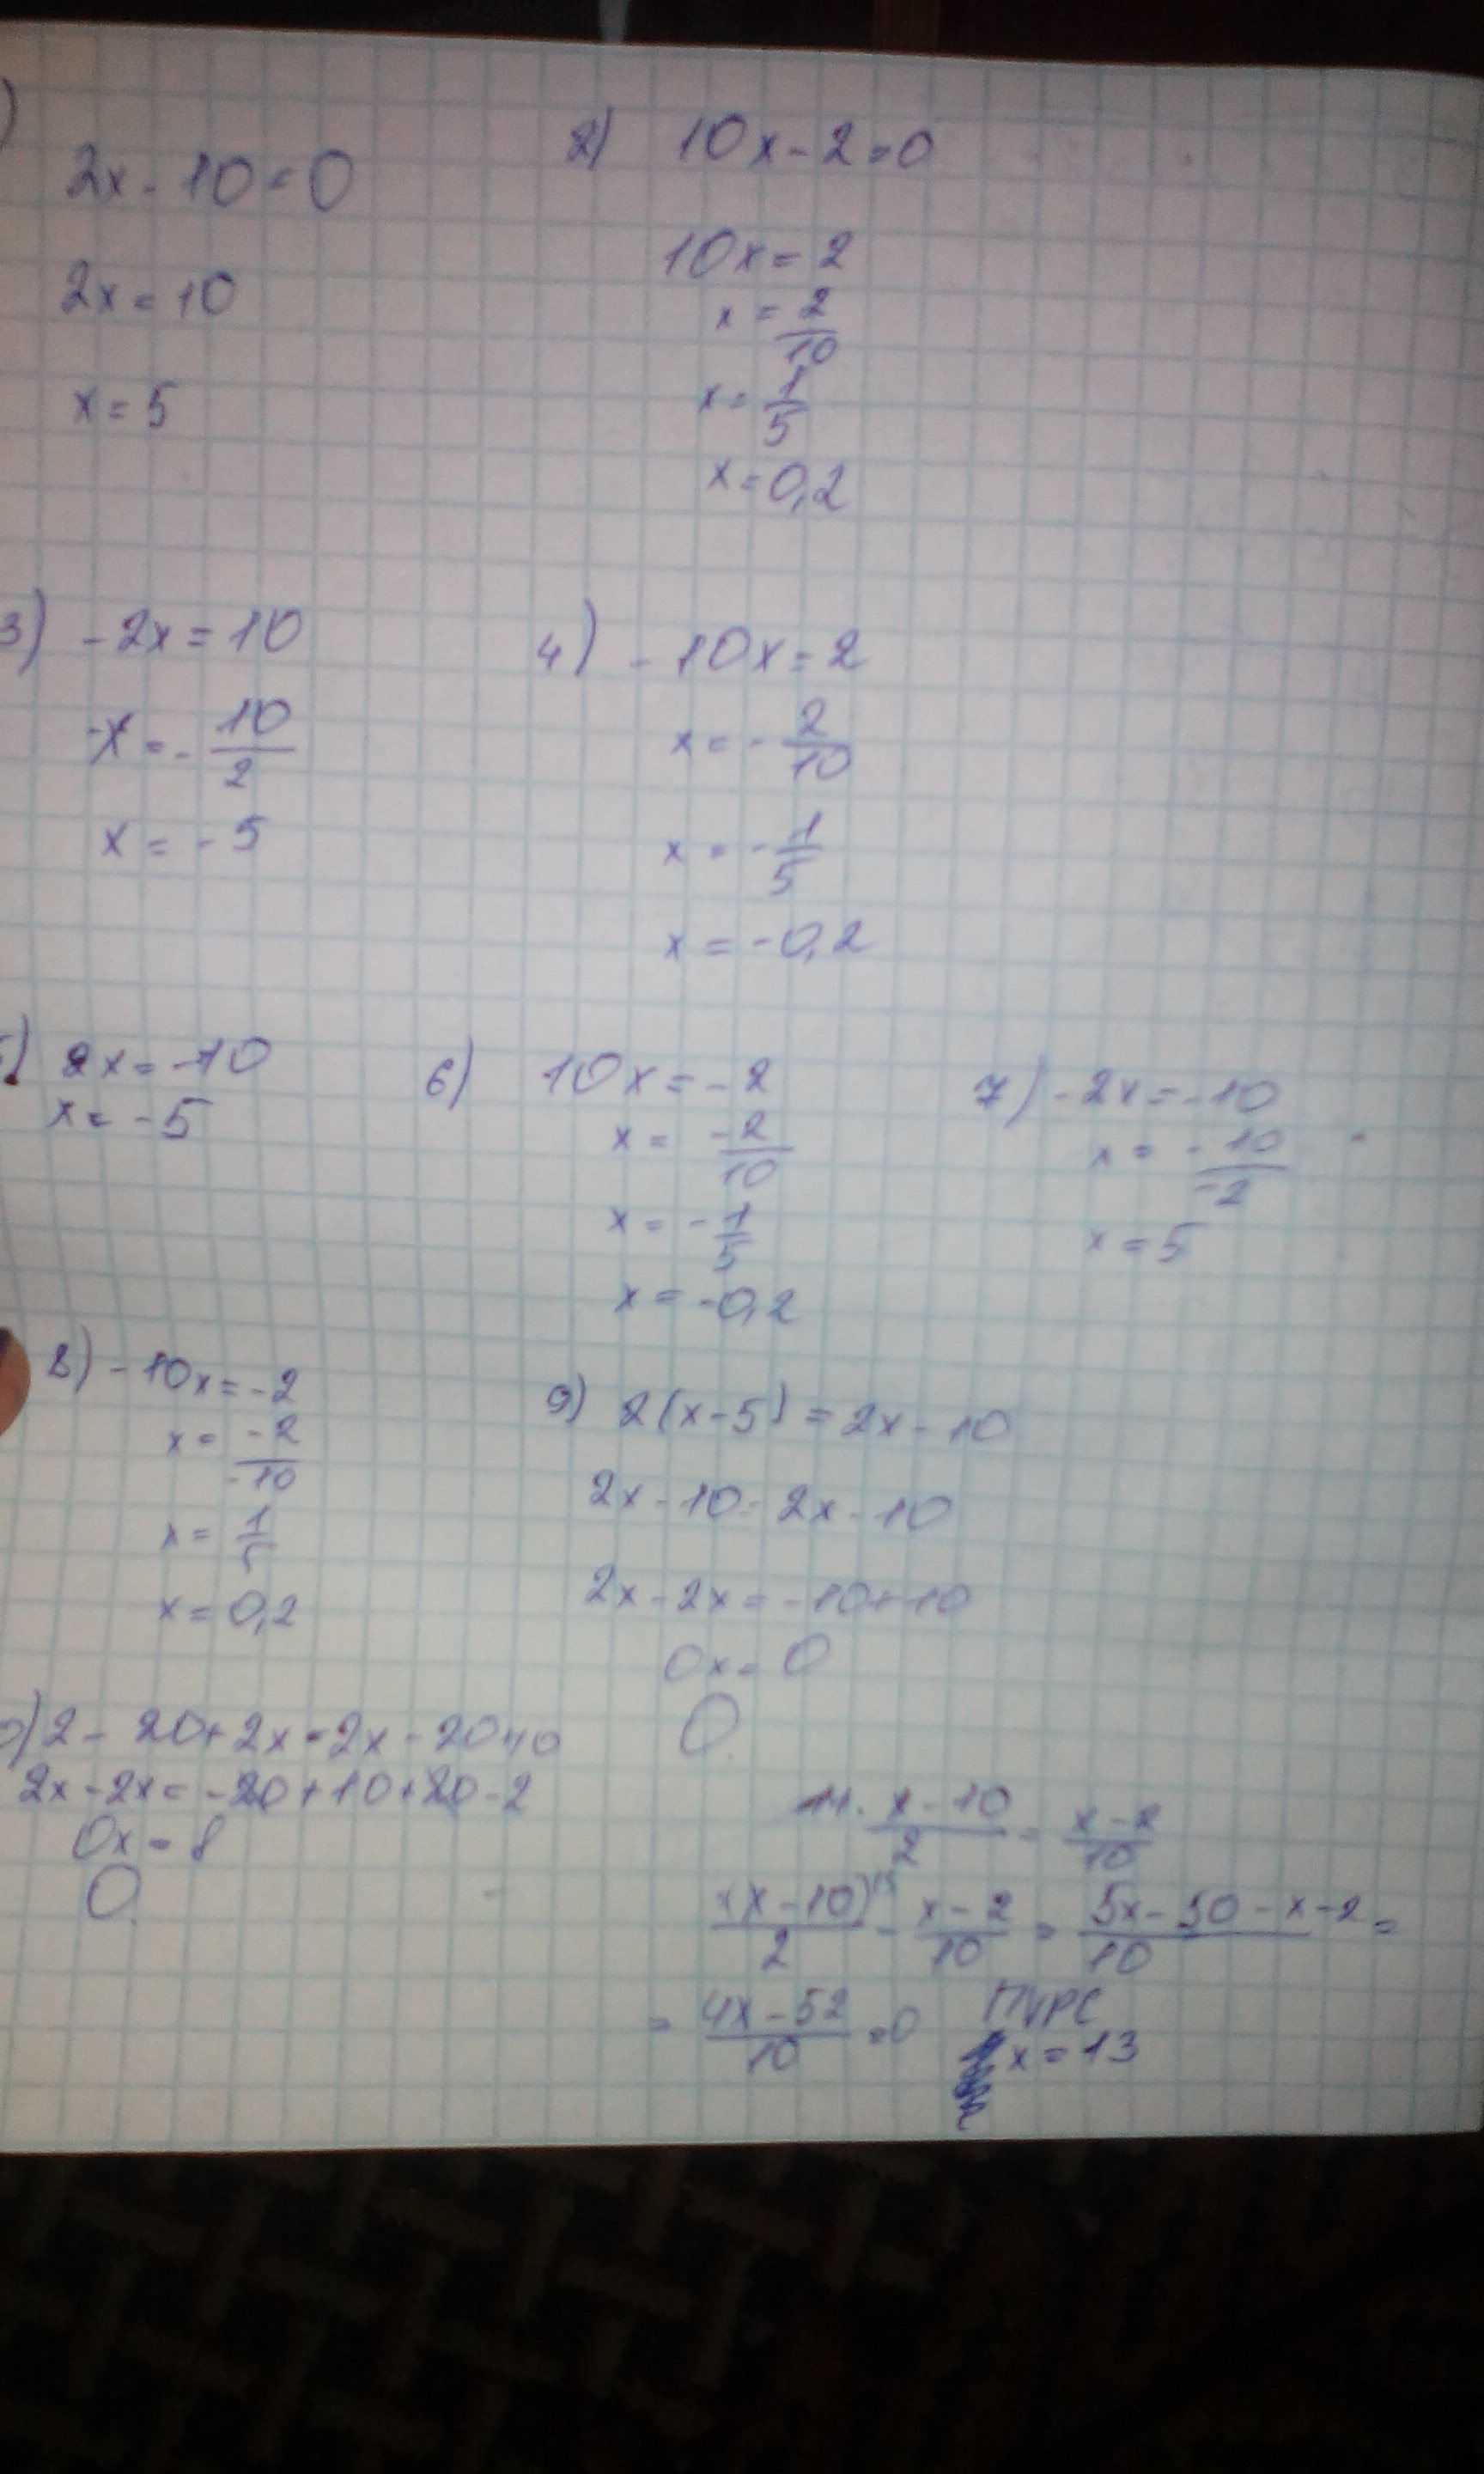 )
2x - 10 = 0
2x = 10
x = 5
2) 10x - 2 = 0
10x = 2
x = 2/10
x = 1/5
x = 0,2
3) - 2x = 10
-x = - 10/2
x = - 5
4) - 10x = 2
x = - 2/10
x = - 1/5
x = -0,2
5) 2x = -10
x = -5
6) 10x = -2
x = -2/10
x = - 1/5
x = -0,2
7) -2x = -10
x = -10/-2
x = 5
8) -10x = -2
x = -2/-10
x = 1/5
x = 0,2
9) 2(x-5) = 2x - 10
2x - 10 = 2x - 10
2x - 2x = -10 + 10
0x = 0
0
0) 2 - 20 + 2x = 2x - 20+10
2x - 2x = -20 + 10 + 20 - 2
0x = 8
0
11. x - 10/2 = x - 2/10
(x - 10)/2 - x - 2/10 = 5x - 50 - x - 2/10 =
= 4x - 52/10 = 0
x = 13